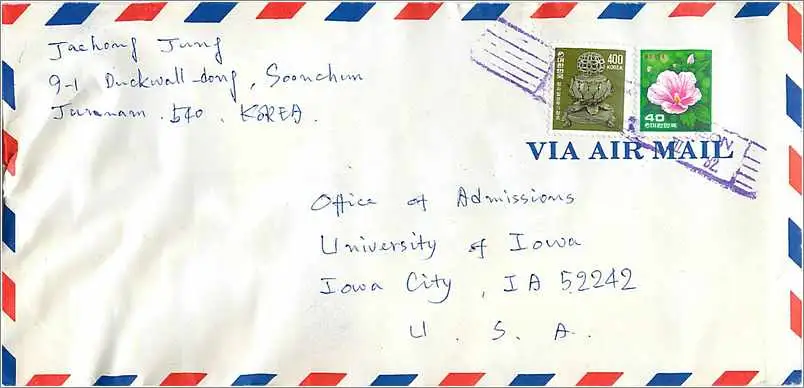 Jaehong Jung
9-1 Duckwall-dong, Soonchun
Junnam. 540, KOREA.
400
KOREA
대한민국
40
대한민국
VIA AIR MAIL
82
Office of Admissions
University of Iowa
Iowa City, IA 52242
U. S. A.